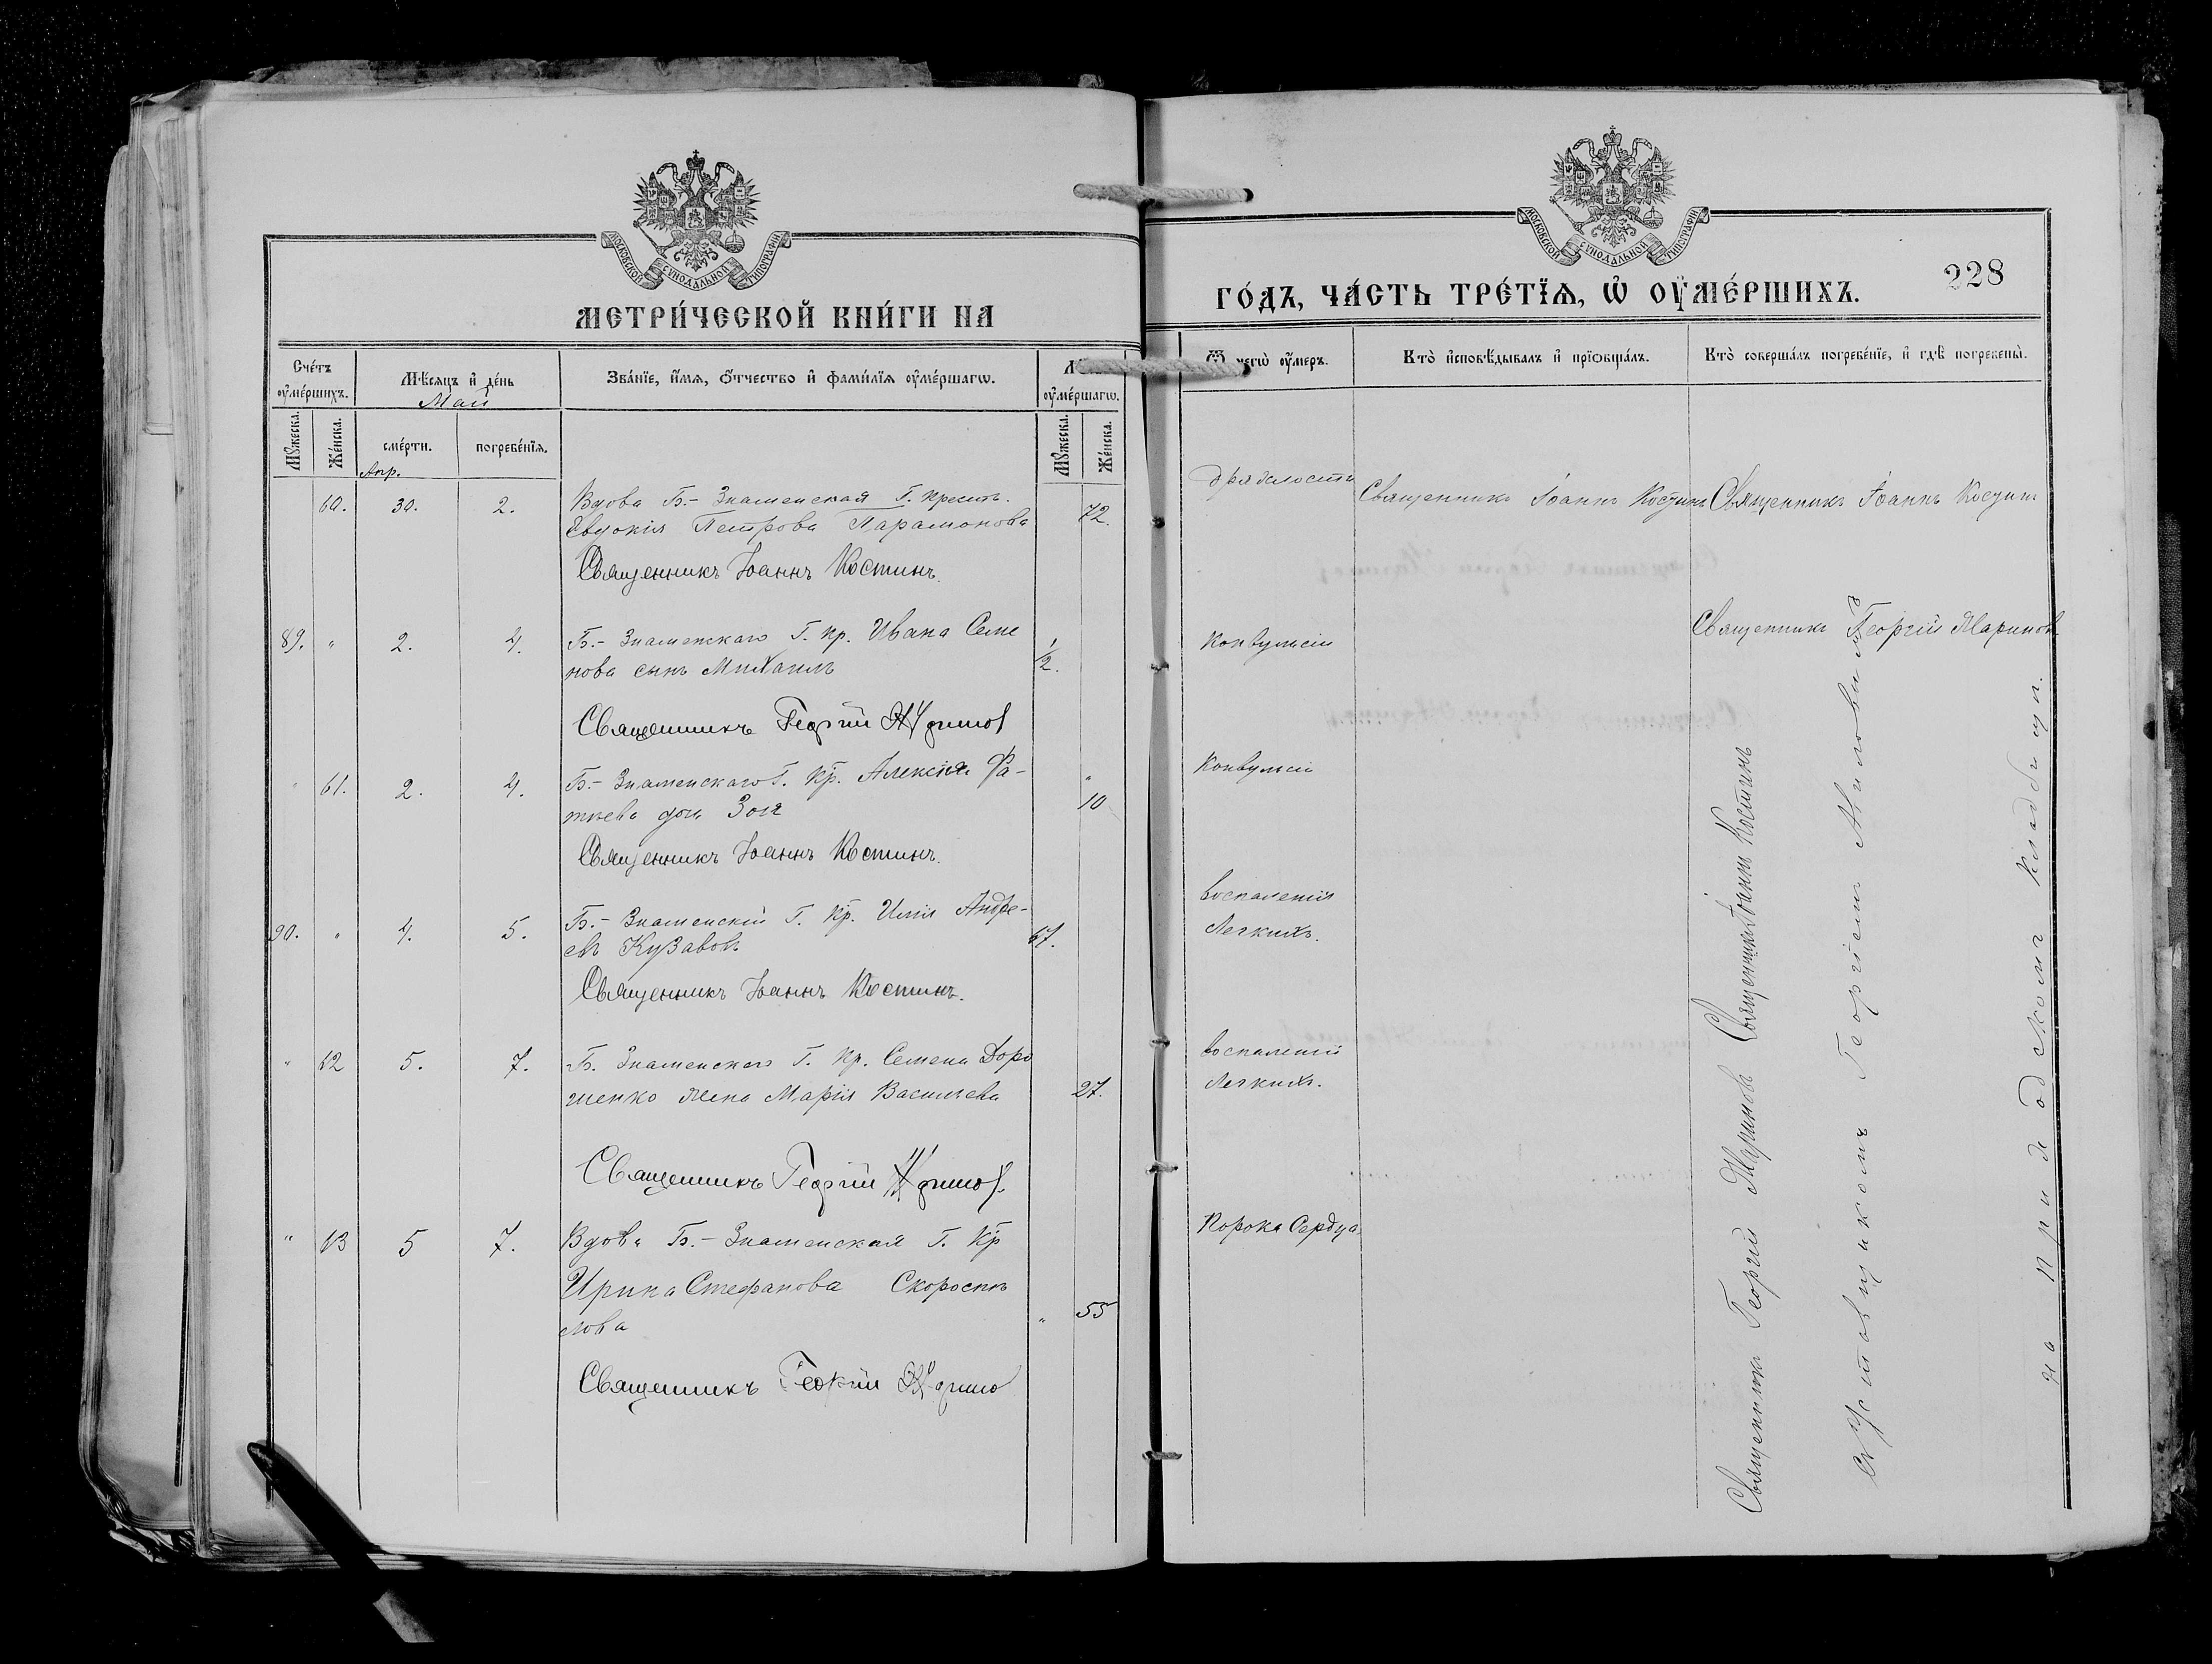 МОСКОВСКОЙ СУНОДАЛЬНОЙ ТИПОГРАФІИ
МЕТРИ́ЧЕСКОЙ КНИ́ГИ НА
Сче́тъ ᲂу҆ме́ршихъ.
Мѣ́сяцъ и҆ де́нь
Май
Зва́нїе, и҆́мѧ, ѻ҆́тчество и҆ фами́лїѧ ᲂу҆ме́ршагѡ.
ᲂу҆ме́ршагѡ.
Мꙋ́жеска.
Же́нска.
сме́рти.
погребе́нїѧ.
Мꙋ́жеска.
Же́нска.
Апр.
60. 30. 2. Вдова Б.- Знаменская Г. крест. 72.
Евдокія Петрова Парамонова
Священникъ Іоаннъ Костинъ.
89. " 2. 4. Б.- Знаменскаго Г. кр. Ивана Семе 1/2.
нова сынъ Михаилъ
Священникъ Георгій
" 61. 2. 4. Б.- Знаменскаго Г. Кр. Алексѣя Фа- "
тѣева дочь Зоя 10
Священникъ Іоаннъ Костинъ.
90. " 4. 5. Б.- Знаменскій Г. Кр. Илія Андре- 67.
евъ Кузавовъ
Священникъ Іоаннъ Костинъ.
" 62 5. 7. Б. Знаменскаго Г. Кр. Семена Доро
шенко жена Марія Васильева 27.
Священникъ Георгій
" 63 5 7. Вдова Б.- Знаменская Г. Кр
Ирина Стефанова Скороспѣ
лова " 55
Священникъ Георгій
МОСКОВСКОЙ СУНОДАЛЬНОЙ ТИПОГРАФІИ
228
ГО́ДЪ, ЧА́СТЬ ТРЕ́ТЇѦ, Ѡ҆ ОУ҆МЕ́РШИХЪ.
Ѿ чегѡ̀ ᲂу҆́меръ.
Кто̀ и҆сповѣ́дывалъ и҆ прїѡбща́лъ.
Кто̀ соверша́лъ погребе́нїе, и҆ гдѣ̀ погребены̀.
дряхлости Священникъ Іоаннъ Костинъ Священникъ Іоаннъ Костинъ
Конвульсіи Священникъ Георгій Мариновъ.
Конвульсіи
Воспаленія
Легкихъ.
Воспаленія
Легкихъ.
Порока Сердца
Священникъ Георгій Мариновъ Священникъ Іоаннъ Костинъ
съ Псаломщикомъ Георгіемъ
на приходскомъ кладбищѣ.